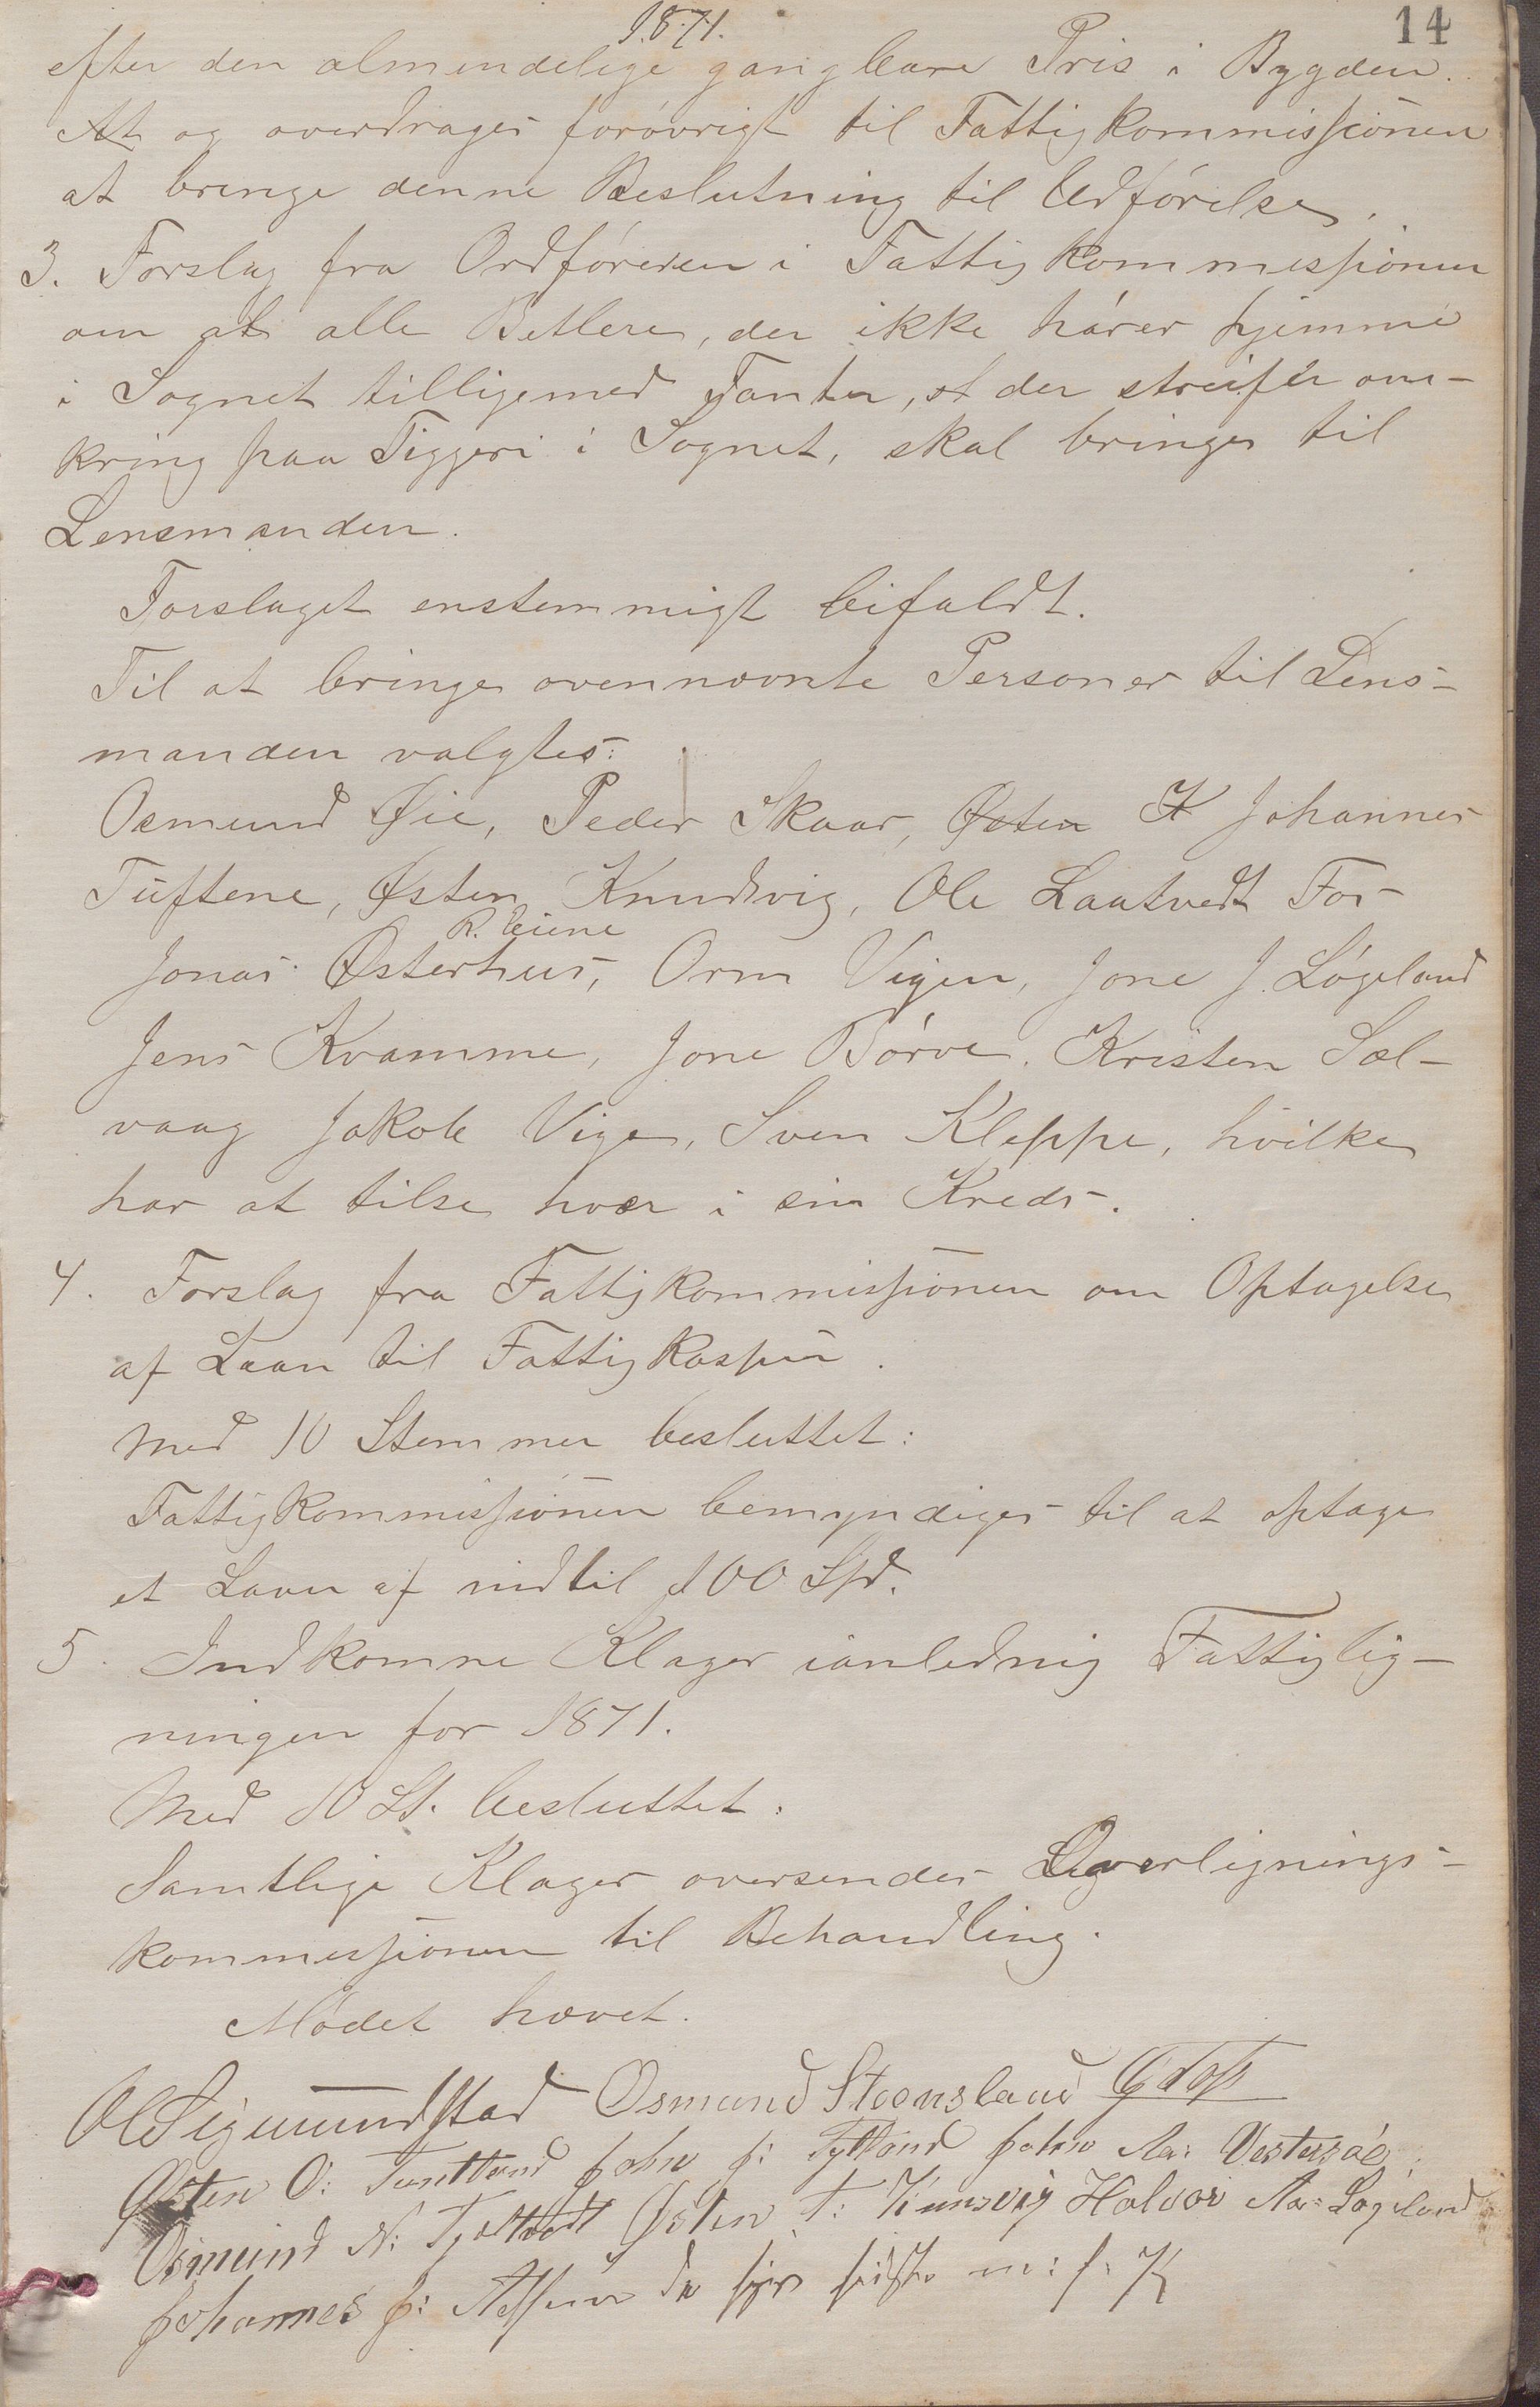 1871.
14
efter den almindelige gangbare Pris i Bygden.
At og overdrages forøvrigt til Fattigkommissionen
at bringe denne Beslutning til Udførelse.
3. Forslag fra Ordføreren i Fattigkommissionen
om at alle Betlere, der ikke hører hjemme
i Sognet tilligemed Fanter, der streifer om-
kring paa Tiggeri i Sognet, skal bringes til
Lensmanden.
Forslaget enstemmigt bifaldt.
Til at bringe ovennævnte Personer til Lens-
manden valgtes:
Osmund Øie, Peder Skaar, Østen K Johannes
Tuftene, Østen Knudsvig, Ole Laatvedt For-
R. Eiene
Jonas Østerhus, Orm Vigen, Jone J. Løgeland
Jens Kvamme, Jone Børve, Kristen Sæl-
vaag Jakob Vige, Sven Kleppe, hvilke
har at tilse hver i sin Kreds.
4. Forslag fra Fattigkommissionen om Optagelse
af Laan til Fattigkassen.
Med 10 Stemmer besluttet:
Fattigkommissionen bemyndiges til at optage
et Laan af indtil 100 Spd.
5. Indkomne Klager ianledning Fattiglig-
ningen for 1871.
Med 10 St. besluttet:
Samtlige Klager oversendes Overlignings-
kommissionen til Behandling.
Mødet hævet.
Ol Sigmundstad Osmund Steensland
Østen O: Tuntland John J: Tytland John Aa: Vestersøe
Osmund N: Tjeltvedt Østen T: Kunsvig Halvor Aa: Løgeland
Johannes J: m: f: K